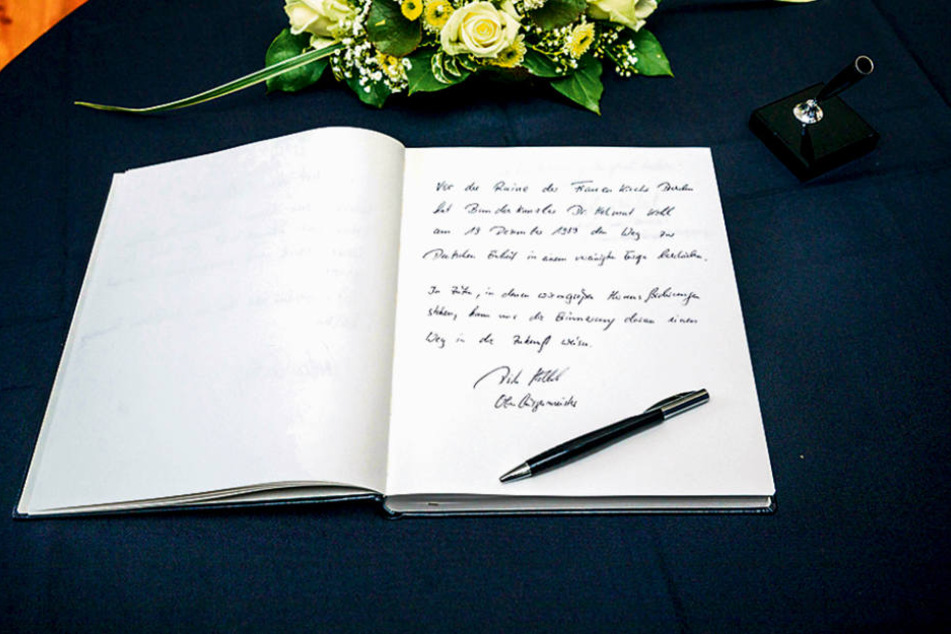 Vor der Ruine der Frauenkirche Dresden
hat Bundeskanzler Dr. Helmut Kohl
am 19 Dezember 1989 den Weg zur
Deutschen Einheit in einem vereinigten Europa beschrieben.
In Zeiten, in denen wir große Herausforderungen
stehen, kann uns die Erinnerung daran einen
Weg in die Zukunft weisen.
Dirk Hilbert
Oberbürgermeister